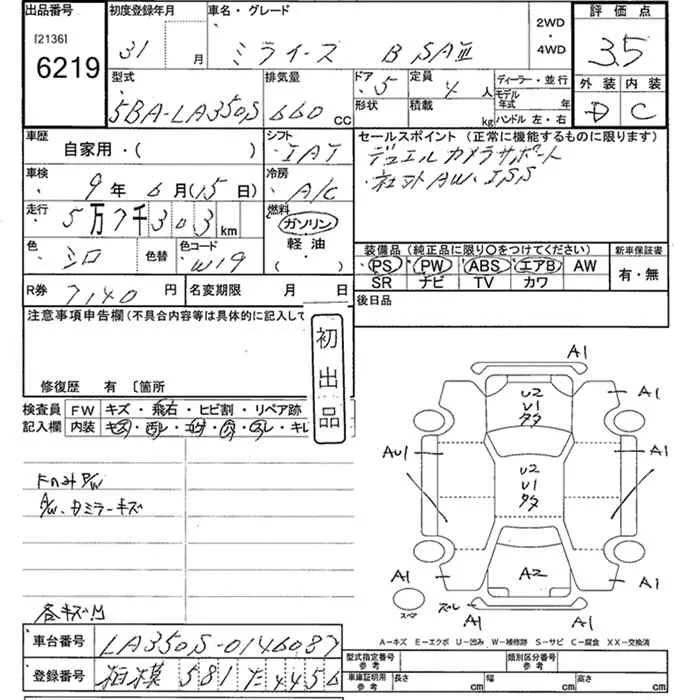 出品番号
[2136]
6219
初度登録年月
31 月
車名・グレード
ミライース B SAⅢ
2WD
・
4WD
評価点
3.5
外装 内装
D C
型式
5BA-LA350S
排気量
660 CC
ドア
5
定員
4 人
形状
積載
kg
ディーラー・並行
モデル
年式 年
ハンドル 左・右
車歴
自家用・( )
シフト
IAT
セールスポイント (正常に機能するものに限ります)
デュエル カメラサポート
社外AW、ISS
車検
9 年 6 月 (15 日)
冷房
A/C
走行
5 万 7 千 3 0 3 km
燃料
ガソリン
軽油
( )
色
シロ
色替
色コード
W19
装備品 (純正品に限り○をつけてください)
PS PW ABS エアB AW
SR ナビ TV カワ
新車保証書
有・無
R券
7140 円
名変期限 月 日
後日品
注意事項申告欄 (不具合内容等は具体的に記入して
修復歴 有 〔箇所
初出品
検査員
記入欄
FW キズ・飛石・ヒビ割・リペア跡
内装 キズ・汚レ・コゲ・穴・スレ・キレ
FガラスP/W
P/W、Bミラーキズ
各キズ凹
A1
U2
U1
タタ
A1 A1
AU1 A1
U2
U1
タタ
A1 A2 A1
スペア
ズレ A1 A1
A-キズ E-エクボ U-凹み W-補修跡 S-サビ C-腐食 XX-交換済
車台番号
LA350S-0146087
登録番号
相模 581 た 4456
型式指定番号
参考
類別区分番号
参考
車庫証明用
参考
長さ cm
幅 cm
高さ cm